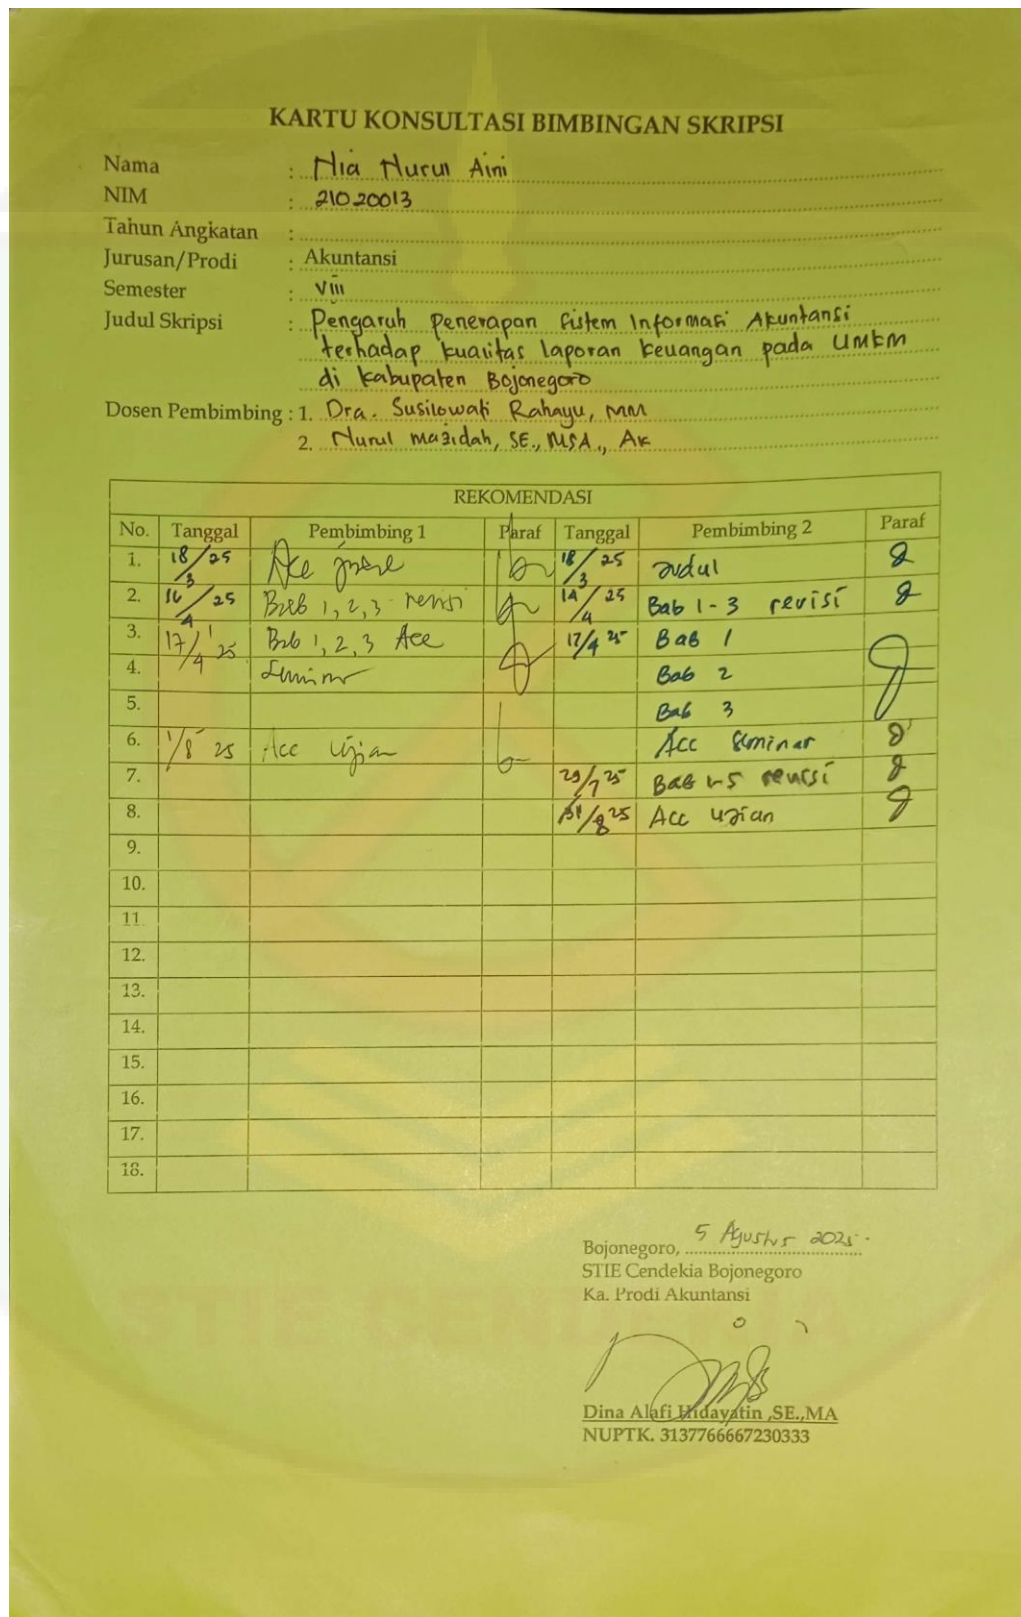 KARTU KONSULTASI BIMBINGAN SKRIPSI
Nama : Nia Nurul Aini
NIM : 21020013
Tahun Angkatan :
Jurusan/Prodi : Akuntansi
Semester : VIII
Judul Skripsi : Pengaruh Penerapan Sistem Informasi Akuntansi
terhadap kualitas laporan keuangan pada UMKM
di Kabupaten Bojonegoro
Dosen Pembimbing : 1. Dra. Susilowati Rahayu, MM
2. Nurul Mazidah, SE., MSA., Ak
REKOMENDASI
No. Tanggal Pembimbing 1 Paraf Tanggal Pembimbing 2 Paraf
1. 18/3 25 Acc 18/3 25 Judul
2. 16/4 25 Bab 1, 2, 3 revisi 14/4 25 Bab 1-3 revisi
3. 17/4 25 Bab 1, 2, 3 Acc 17/4 25 Bab 1
4. Seminar Bab 2
5. Bab 3
6. 1/8 25 Acc Ujian Acc Seminar
7. 29/7 25 Bab 1-5 revisi
8. /8 25 Acc Ujian
9.
10.
11.
12.
13.
14.
15.
16.
17.
18.
Bojonegoro, 5 Agustus 2025.
STIE Cendekia Bojonegoro
Ka. Prodi Akuntansi
Dina Alafi Hidayatin ,SE.,MA
NUPTK. 3137766667230333